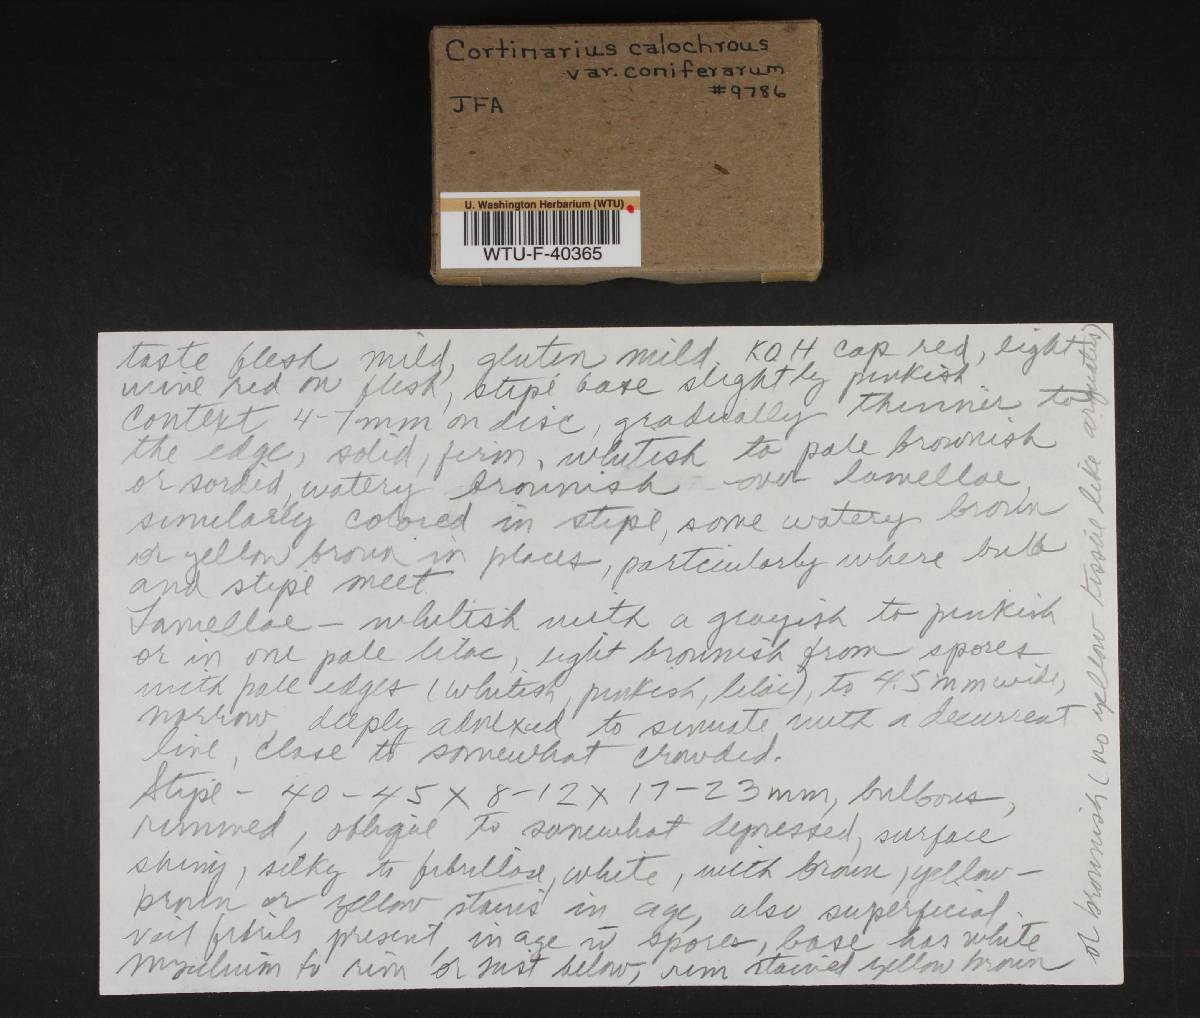 Cortinarius calochrous
var. coniferarum
#9786
JFA
U. Washington Herbarium (WTU)
WTU-F-40365
taste flesh mild, gluten mild. KOH cap red, light
wine red on flesh, stipe base slightly pinkish
Context 4-7mm on disc, gradually thinner to
the edge, solid, firm, whitish to pale brownish
or sordid, watery brownish over lamellae,
similarly colored in stipe, some watery brown
or yellow brown in places, particularly where bulb
and stipe meet
Lamellae - whitish with a grayish to pinkish
or in one pale lilac, light brownish from spores
with pale edges (whitish, pinkish, lilac), to 4.5mm wide,
narrow, deeply adnexed to sinuate with a decurrent
line, close to somewhat crowded.
Stipe - 40-45 X 8-12 X 17-23mm, bulbous,
rimmed, oblique to somewhat depressed, surface
shiny, silky to fibrillose, white, with brown, yellow-
brown or yellow stains in age, also superficial
veil fibrils present in age w spores, base has white
mycelium to rim or just below, rim stained yellow brown
or brownish (no yellow tissue like arquatus)